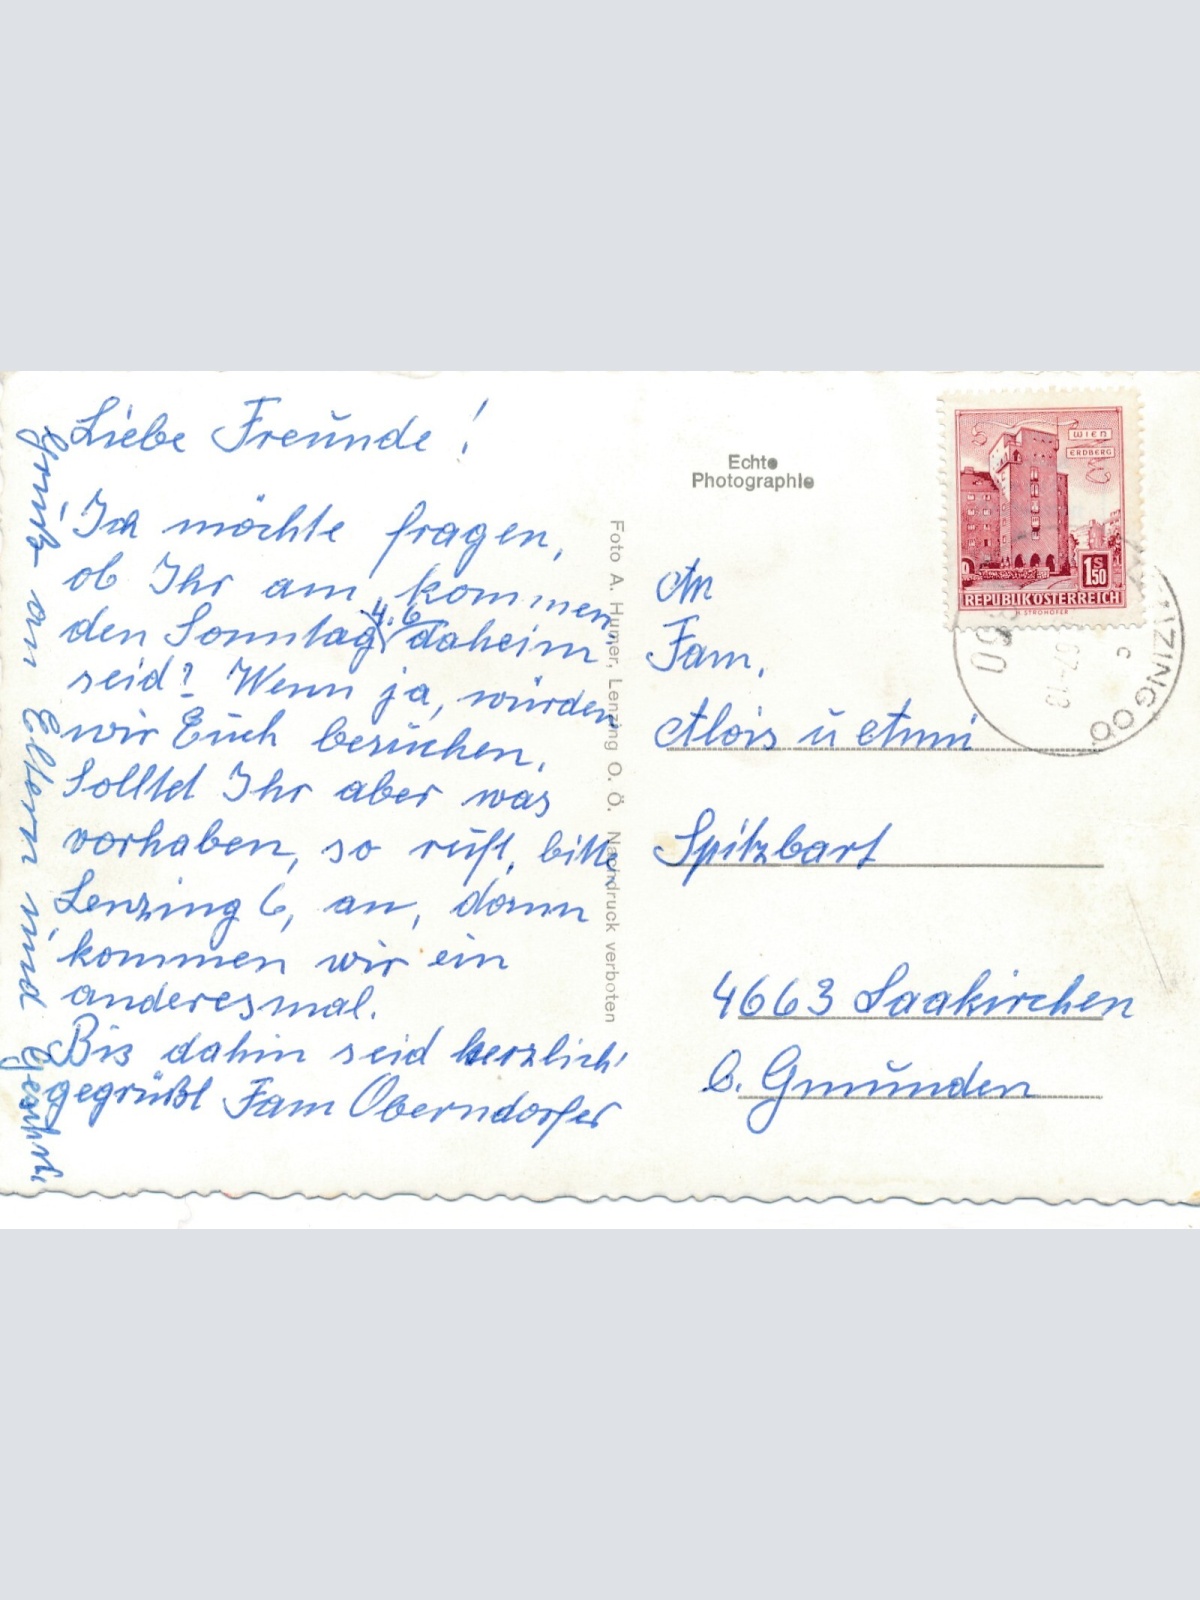 Liebe Freunde!
Ich möchte fragen,
ob Ihr am kommen
den Sonntag 4.6. daheim
seid? Wenn ja, würden
wir Euch besuchen.
Solltet Ihr aber was
vorhaben, so ruft, bitte,
Lenzing 6, an, dann
kommen wir ein
anderesmal.
Bis dahin seid herzlich
gegrüßt Fam Oberndorfer
Gruß an Eltern und
Foto A. Humer, Lenzing O. Ö. Nachdruck verboten
Echte
Photographie
WIEN
ERDBERG
1 S 50
REPUBLIK ÖSTERREICH
67-18
c
An
Fam.
Alois u Anni
Spitzbart
4663 Laakirchen
b. Gmunden